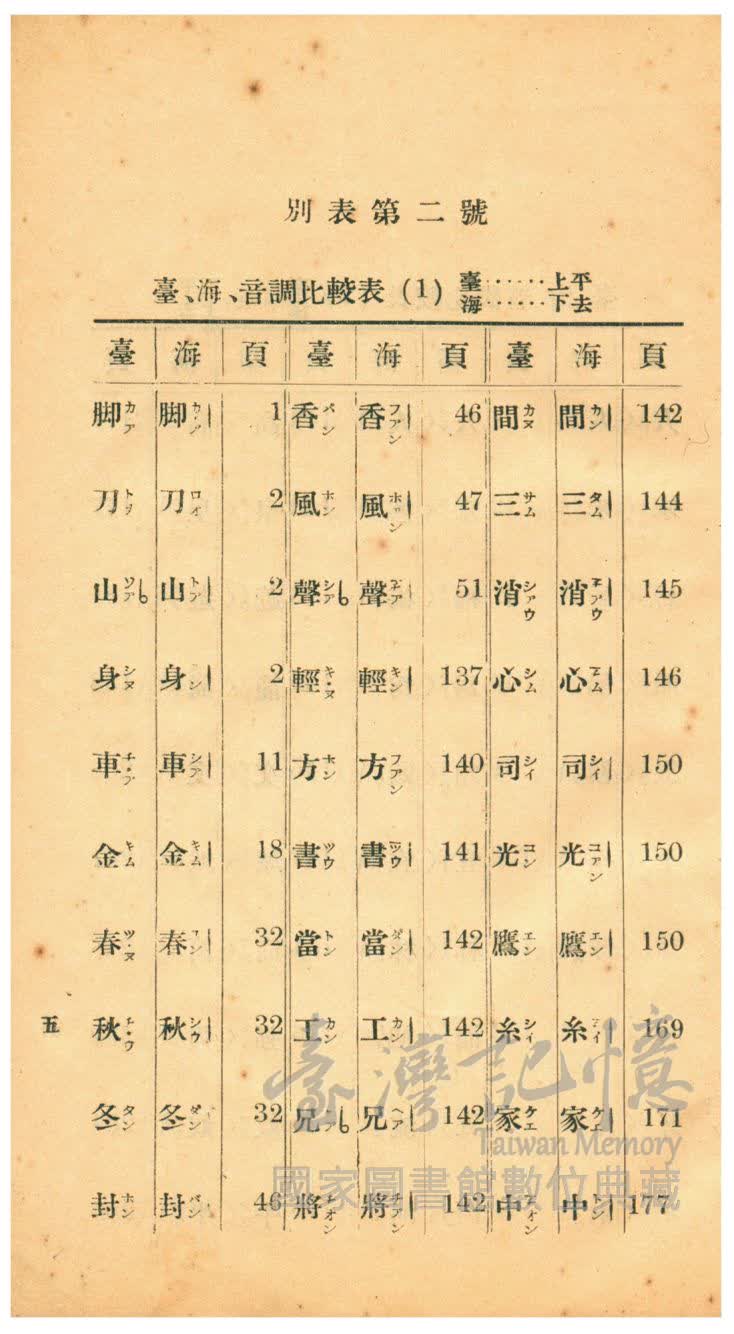 別表第二號
臺、海、音調比較表 (1) 臺……上平
海……下去
臺 海 頁 臺 海 頁 臺 海 頁
脚カア 脚カア 1 香パン 香フアン 46 間カヌ 間カン 142
刀トヲ 刀ロオ 2 風ホン 風ホン 47 三サム 三タム 144
山ソア 山トア 2 聲シア 聲 51 消シアウ 消 145
身シヌ 身 2 輕キヌ 輕キン 137 心シム 心 146
車 車シア 11 方ホン 方フアン 140 司シイ 司シイ 150
金キム 金キム 18 書ツウ 書ツウ 141 光コン 光コアン 150
春ツヌ 春 32 當トン 當ダン 142 鷹エン 鷹エン 150
秋チウ 秋シウ 32 工カン 工カン 142 糸シイ 糸 169
冬タン 冬ダン 32 兄 兄ヘア 142 家ケエ 家ケエ 171
封ホン 封パン 46 將 將 142 中 中 177
五
臺灣記憶
Taiwan Memory
國家圖書館數位典藏